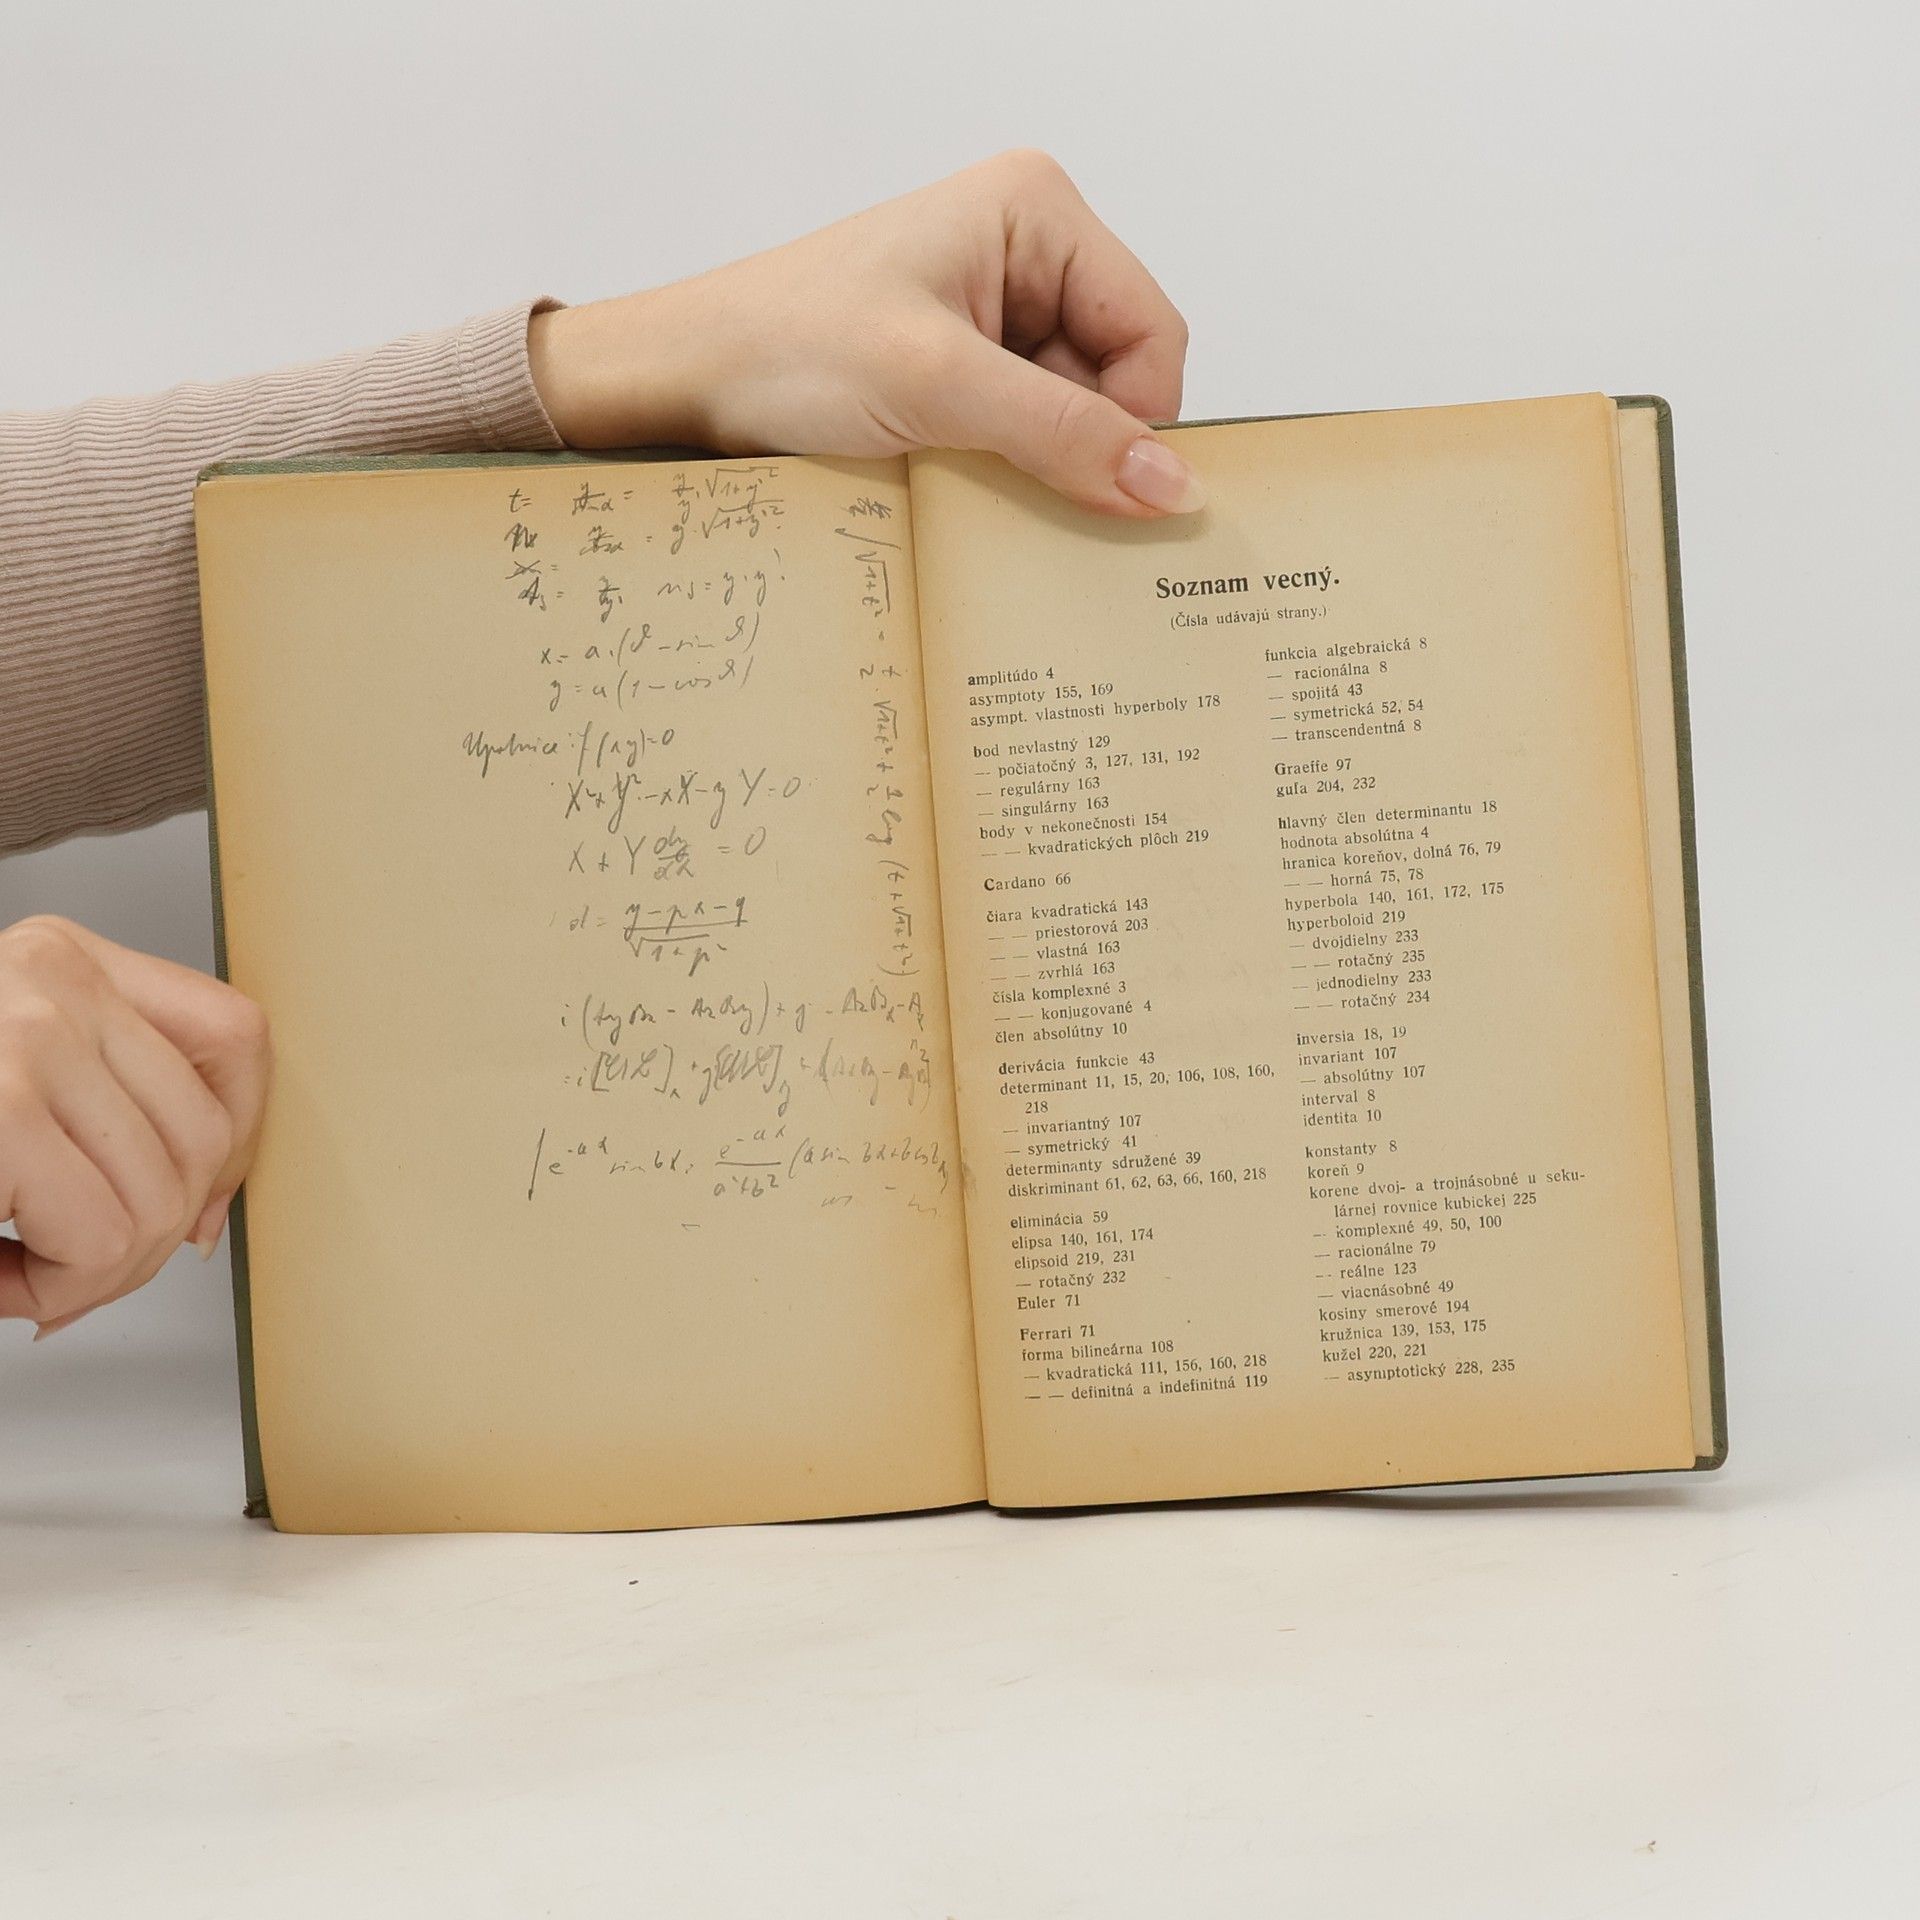 x = a.(ϑ - sin ϑ)
y = a(1 - cos ϑ)
X² + Y² - xX - yY = 0
X + Y dy/dx = 0
d = y - px - q / √1 + p²
∫ e^-ax sin bx = e^-ax / a² + b² (a sin bx + b cos bx
√1+t² = t/2 . √1+t² + 1/2 log (t + √1+t²)
Soznam vecný.
(Čísla udávajú strany.)
amplitúdo 4
asymptoty 155, 169
asympt. vlastnosti hyperboly 178
bod nevlastný 129
— počiatočný 3, 127, 131, 192
— regulárny 163
— singulárny 163
body v nekonečnosti 154
— — kvadratických plôch 219
Cardano 66
čiara kvadratická 143
— — priestorová 203
— — vlastná 163
— — zvrhlá 163
čísla komplexné 3
— — konjugované 4
člen absolútny 10
derivácia funkcie 43
determinant 11, 15, 20, 106, 108, 160,
218
— invariantný 107
— symetrický 41
determinanty sdružené 39
diskriminant 61, 62, 63, 66, 160, 218
eliminácia 59
elipsa 140, 161, 174
elipsoid 219, 231
— rotačný 232
Euler 71
Ferrari 71
forma bilineárna 108
— kvadratická 111, 156, 160, 218
— — definitná a indefinitná 119
funkcia algebraická 8
— racionálna 8
— spojitá 43
— symetrická 52, 54
— transcendentná 8
Graeffe 97
guľa 204, 232
hlavný člen determinantu 18
hodnota absolútna 4
hranica koreňov, dolná 76, 79
— — horná 75, 78
hyperbola 140, 161, 172, 175
hyperboloid 219
— dvojdielny 233
— — rotačný 235
— jednodielny 233
— — rotačný 234
inversia 18, 19
invariant 107
— absolútny 107
interval 8
identita 10
konstanty 8
koreň 9
korene dvoj- a trojnásobné u seku-
lárnej rovnice kubickej 225
— komplexné 49, 50, 100
— racionálne 79
— reálne 123
— viacnásobné 49
kosiny smerové 194
kružnica 139, 153, 175
kužel 220, 221
— asymptotický 228, 235